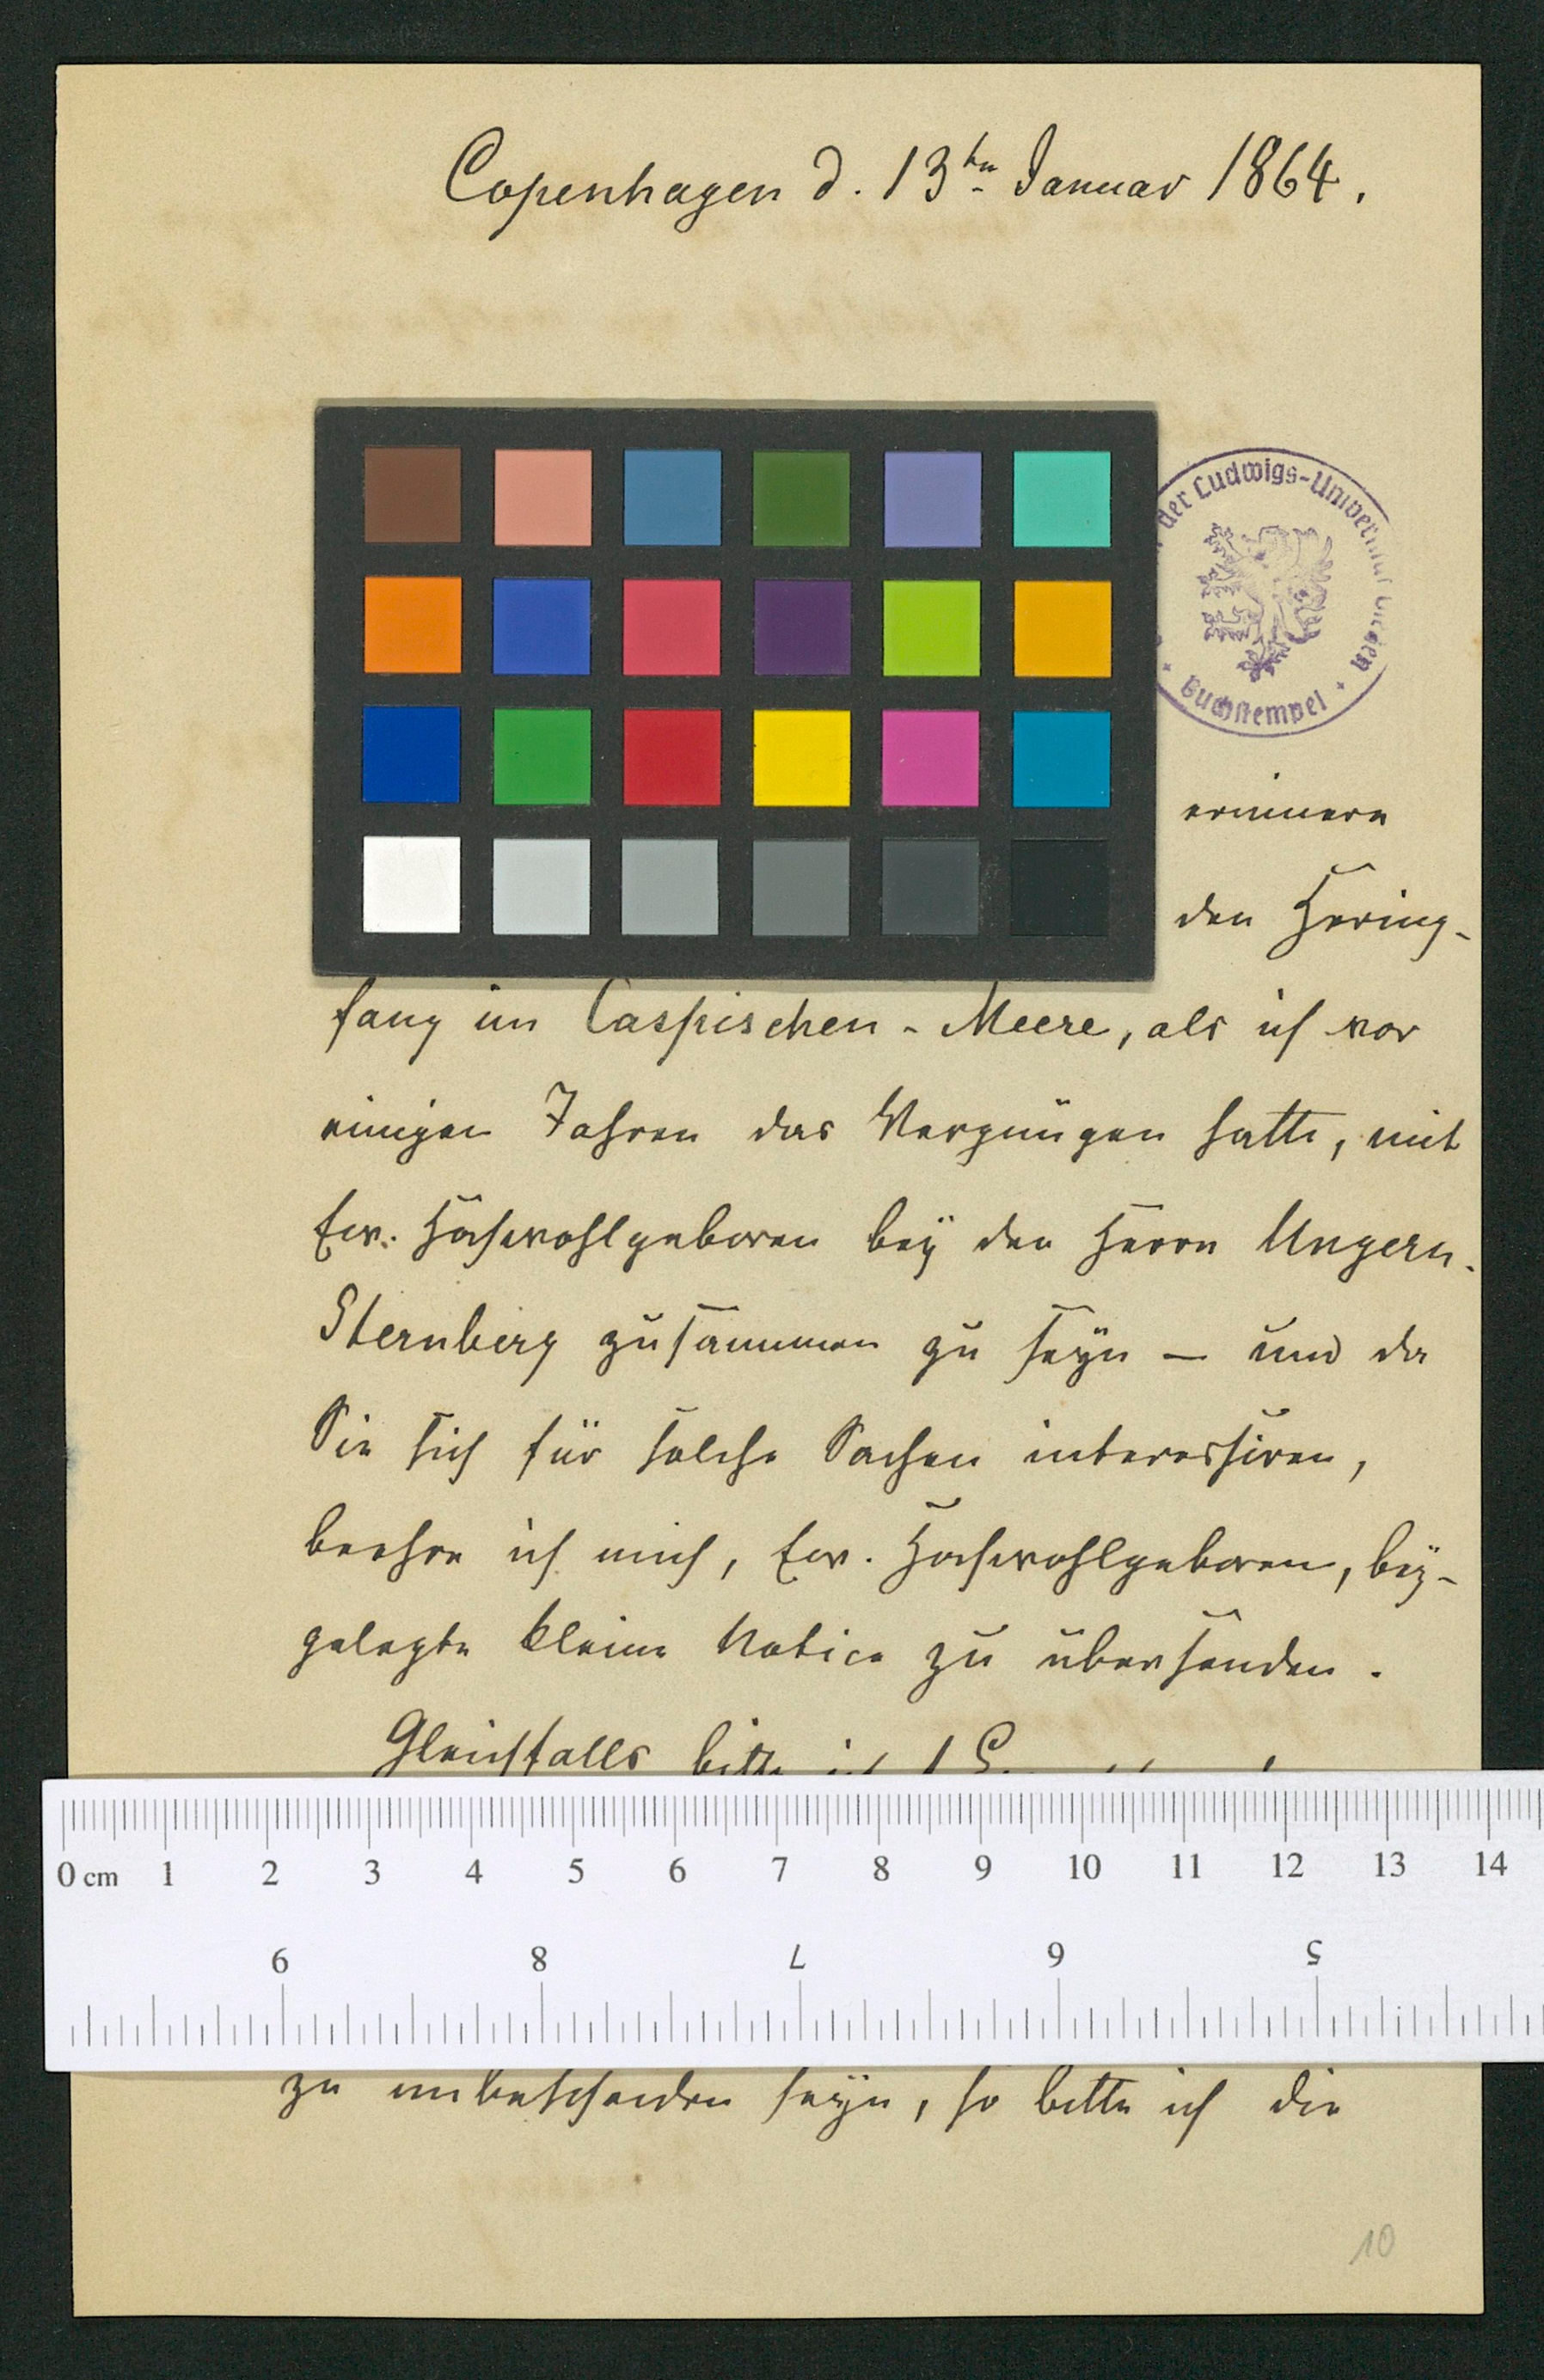 Copenhagen d. 13ten Januar 1864.
der Ludwigs-Universität Gießen
Buchstempel
erinnere
den Hering-
fang im Caspischen-Meere, als ich vor
einigen Jahren das Vergnügen hatte, mit
Ew. Hochwohlgeboren beÿ den Herrn Ungern-
Sternberg zusammen zu seÿn — und da
Sie sich für solche Sachen interessiren,
beehre ich mich, Ew. Hochwohlgeboren, beÿ-
gelegte kleine Notice zu übersenden.
Gleichfalls bitte ich
0 cm 1 2 3 4 5 6 7 8 9 10 11 12 13 14
9 8 7 6 5
zu unbescheiden seÿn, so bitte ich die
10